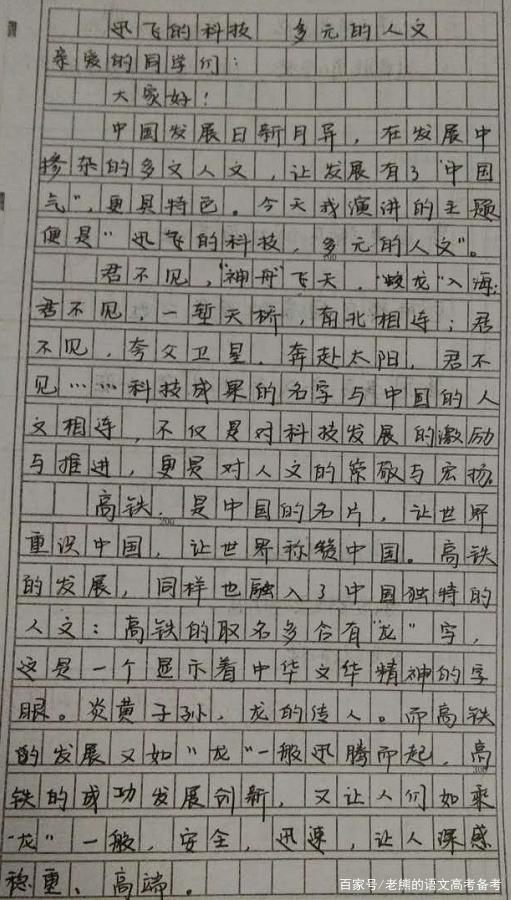 迅飞的科技 多元的人文
亲爱的同学们：
大家好！
中国发展日新月异，在发展中
掺杂的多文人文，让发展有了"中国
气"，更具特色。今天我演讲的主题
便是"迅飞的科技，多元的人文"。
君不见，"神舟"飞天，"蛟龙"入海；
君不见，一堑天桥，南北相连；君
不见，夸父卫星，奔赴太阳，君不
见……科技成果的名字与中国的人
文相连，不仅是对科技发展的激励
与推进，更是对人文的崇敬与宏扬。
高铁，是中国的名片，让世界
重识中国，让世界称赞中国。高铁
的发展，同样也融入了中国独特的
人文：高铁的取名多含有"龙"字，
这是一个显示着中华文华精神的字
眼。炎黄子孙，龙的传人。而高铁
的发展又如"龙"一般迅腾而起，高
铁的成功发展创新，又让人们如乘
"龙"一般，安全，迅速，让人深感
稳重、高端。
200
300
百家号/老熊的语文高考备考